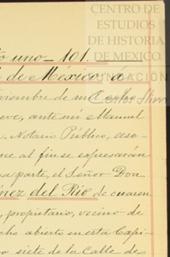 CENTRO DE
ESTUDIOS
DE HISTORIA
DE MEXICO
uno - 101.
de México, a
viembre de mil
eve, ante mí Manuel
Notario Público, aso-
ne al fin se expresarán
a parte, el Señor Don
nez del Rio de cuaren
, propietario, vecino de
cho abierto en esta Capi-
siete de la Calle de